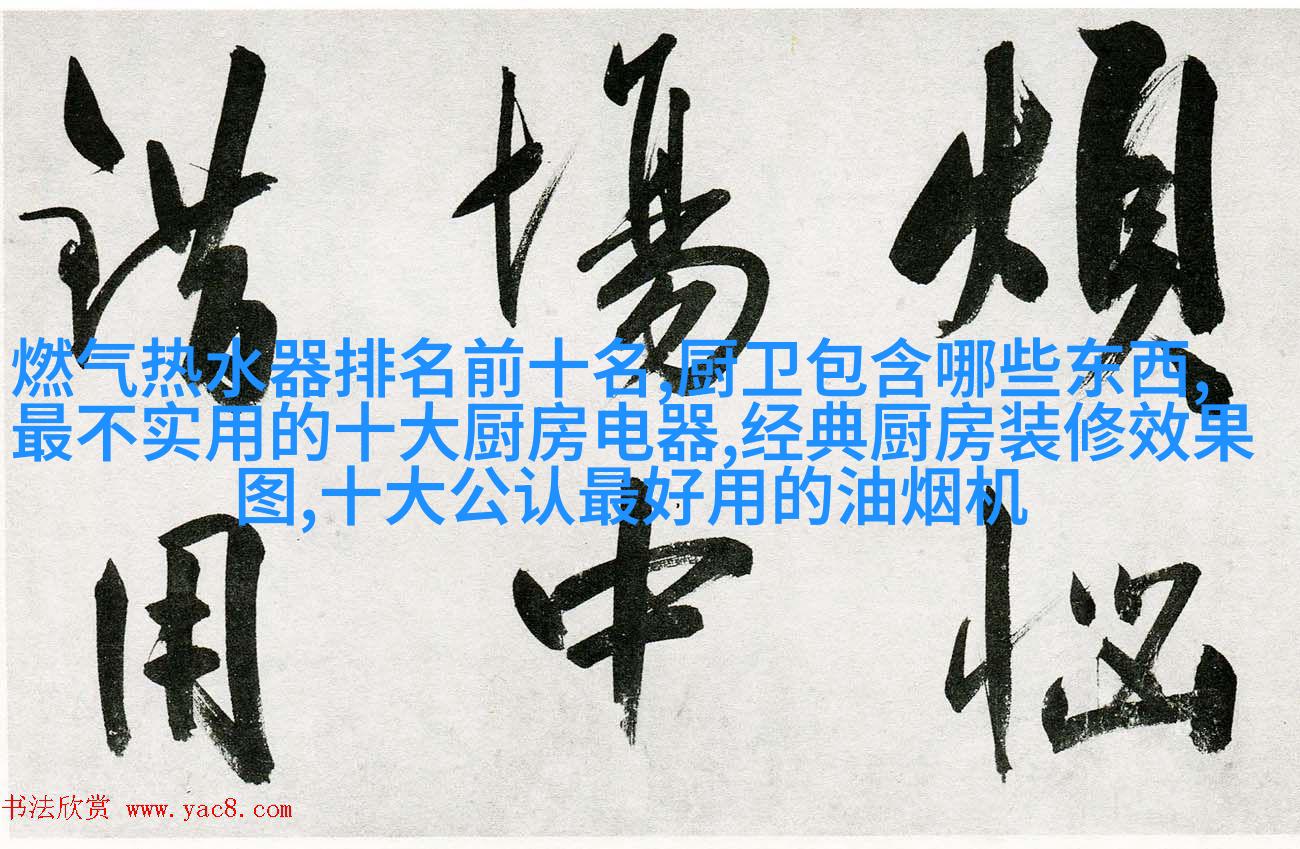 煩惱
場中
錯用
燃气热水器排名前十名,厨卫包含哪些东西,
最不实用的十大厨房电器,经典厨房装修效果
图,十大公认最好用的油烟机
书法欣赏 www.yac8.com